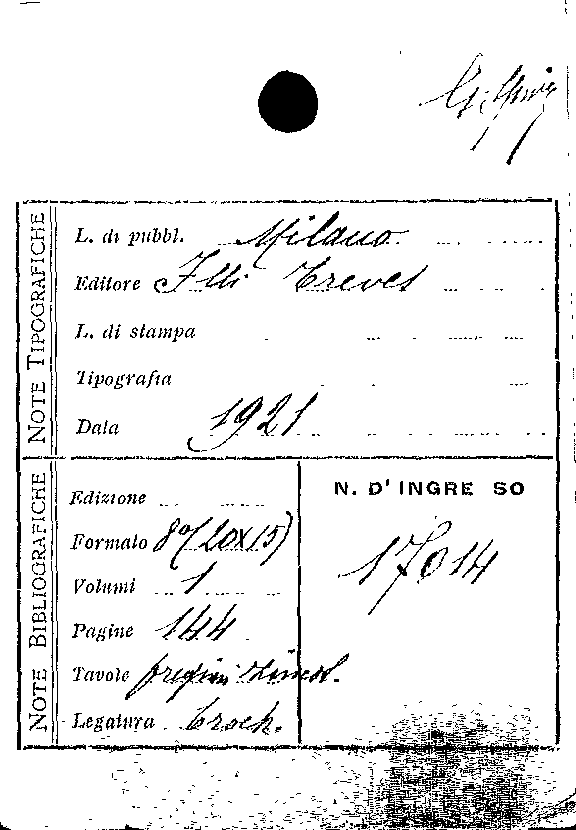 NOTE TIPOGRAFICHE
L. di pubbl. Milano
Editore Flli Treves
L. di stampa
Tipografia
Data 1921
NOTE BIBLIOGRAFICHE
Edizione
Formato 8º (20x15)
Volumi 1
Pagine 144
Tavole fregi
Legatura broch.
N. D'INGRE SO
17014